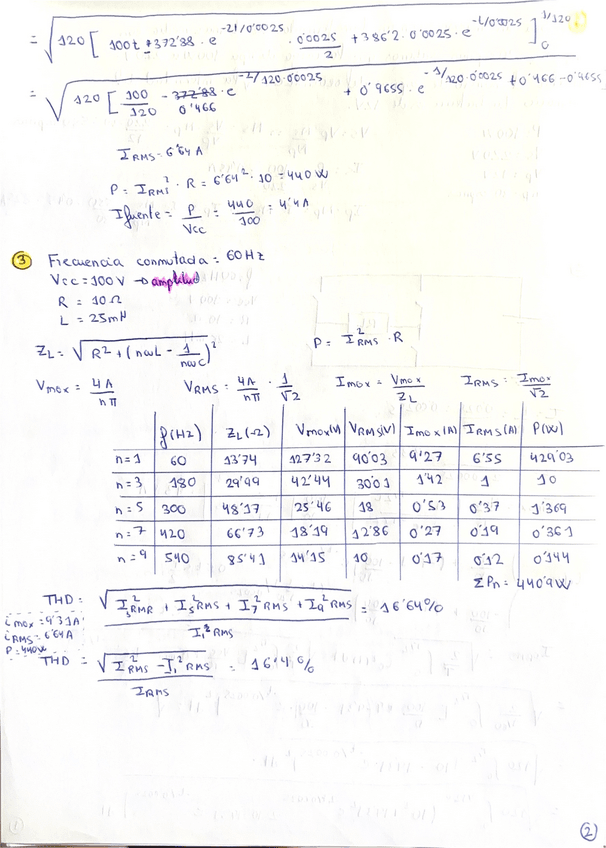 = √120 [ 100t + 372'88 · e^(-2t/0'0025) · 0'0025/2 + 386'2 · 0'0025 · e^(-t/0'0025) ]₀^(1/120)
= √120 [ 100/120 - 0'466 · e^(-2/120·0'0025) + 0'9655 · e^(-1/120·0'0025) + 0'466 - 0'9655
I RMS = 6'64 A
P = I RMS² · R = 6'64² · 10 = 440 W
I fuente = P/Vcc = 440/100 = 4'4 A
③ Frecuencia conmutada = 60 Hz
Vcc = 100 V → amplitud
R = 10 Ω
L = 25 mH
ZL = √(R² + (nωL - 1/nωC)²) P = I²RMS · R
Vmax = 4A/nπ VRMS = 4A/nπ · 1/√2 Imax = Vmax/ZL IRMS = Imax/√2
f(Hz) ZL(Ω) Vmax(V) VRMS(V) Imax(A) IRMS(A) P(W)
n=1 60 13'74 127'32 90'03 9'27 6'55 429'03
n=3 180 29'99 42'44 30'01 1'42 1 10
n=5 300 48'17 25'46 18 0'53 0'37 1'369
n=7 420 66'73 18'19 12'86 0'27 0'19 0'361
n=9 540 85'41 14'15 10 0'17 0'12 0'144
ΣPn = 440'9 W
THD: √(I₃²RMR + I₅²RMS + I₇²RMS + I₉²RMS) / I₁²RMS = 16'64%
imax = 9'31A
iRMS = 6'64A
P = 440W
THD = √(I²RMS - I₁²RMS) / IRMS = 16'4%
①
②